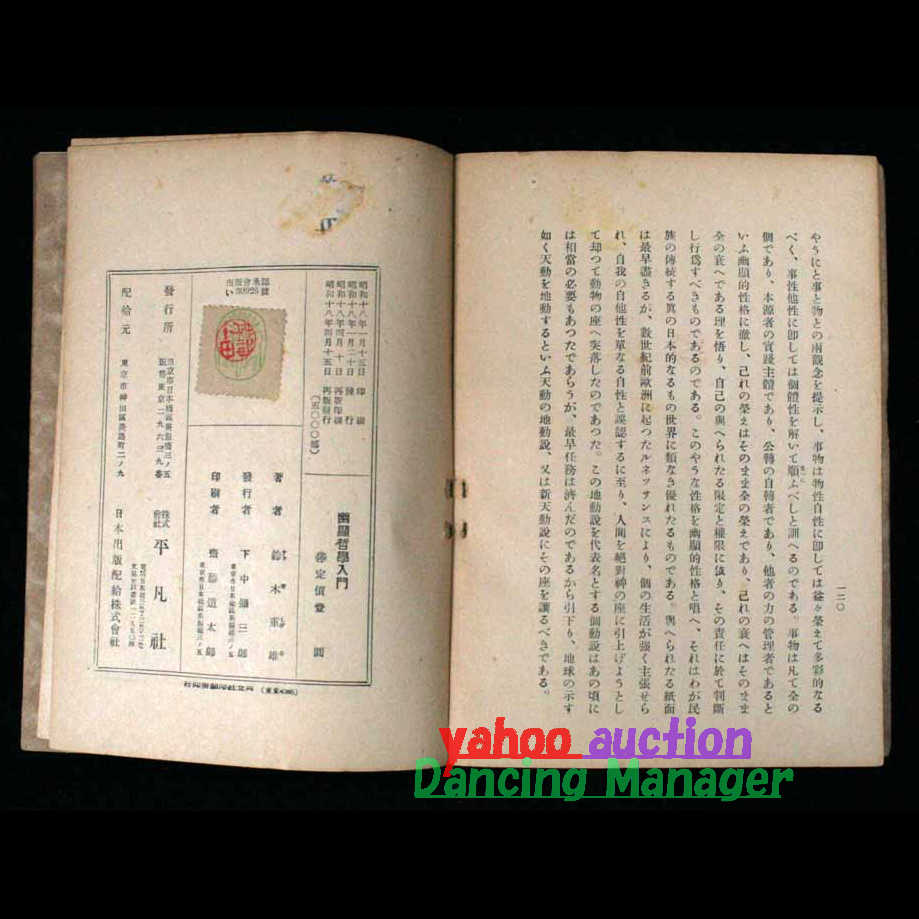 一二〇
やうにと事と物との兩觀念を提示し、事物は物性自性に卽しては益々榮えて多彩的なる
べく、事性他性に卽しては個體性を解いて順ふべしと訓へるのである。事物は凡て全の
個であり、本源者の實踐主體であり、公轉の自轉者であり、他者の力の管理者であると
いふ幽顯的性格に徹し、己れの榮えはそのまま全の榮えであり、己れの衰へはそのまま
全の衰へである理を悟り、自己の與へられたる限定と權限に鎭り、その責任に於て判斷
し行爲すべきものであるのである。このやうな性格を幽顯的性格と唱へ、それはわが民
族の傳統する眞の日本的なるもの世界に類なき優れたるものである。與へられたる紙面
は最早盡きるが、數世紀前歐洲に起つたルネッサンスにより、個の生活が强く主張せら
れ、自我の自他性を單なる自性と誤認するに至り、人間を絕對神の座に引上げようとし
て却つて動物の座へ突落したのであつた。この地動說を代表名とする個動說はあの頃に
は相當の必要もあつたであらうが、最早任務は濟んだのであるから引下り、地球の示す
如く天動を地動するといふ天動の地動說、又は新天動說にこの座を讓るべきである。
出版會承認
い30926號
昭和十八年一月十五日 印刷
昭和十八年一月二十日 發行
昭和十八年四月十日 再版印刷
昭和十八年四月十五日 再版發行
(五〇〇〇部)
幽顯哲學入門
定價壹圓
著者 鈴木重雄
發行者 下中彌三郎
東京市日本橋區吳服橋三ノ五
印刷者 齋藤道太郎
東京市日本橋區吳服橋三ノ五
發行所
東京市日本橋區吳服橋三ノ五
振替東京二九六三九番
株式會社 平凡社
配給元
東京市神田區淡路町二ノ九
日本出版配給株式會社
yahoo auction
Dancing Manager